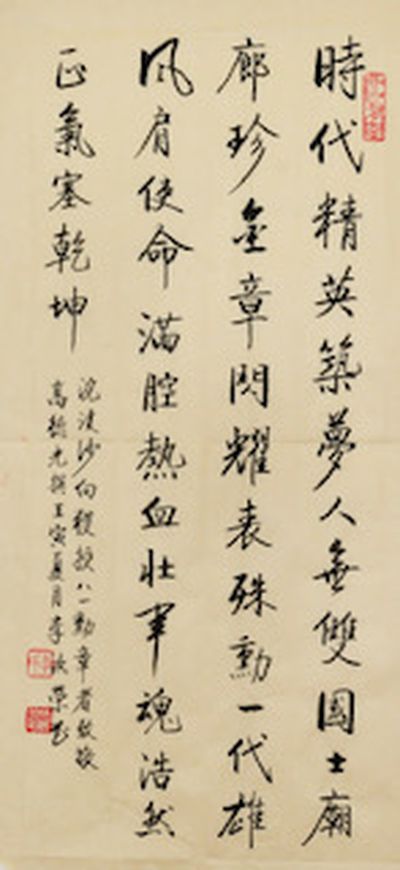 時代精英築夢人無雙國士廟
廊珍金章閃耀表殊勳一代雄
風肩使命滿腔熱血壯軍魂浩然
正氣塞乾坤
沙向獲授八一勳章者致敬
高 九撰壬寅夏月李 榮書